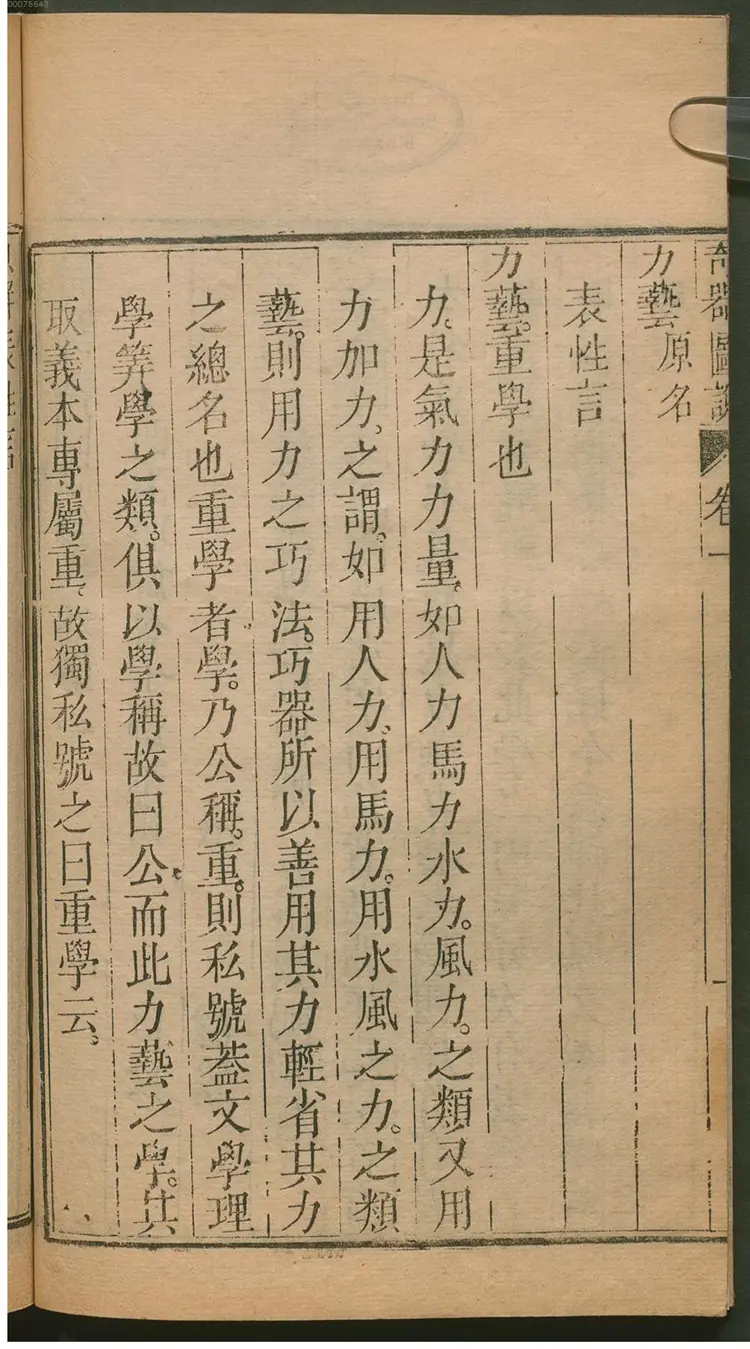 00075643
奇器圖說 卷一
力藝原名
表性言
力藝。重學也
力。是氣力力量。如人力馬力水力。風力。之類又用
力加力。之謂。如用人力。用馬力。用水風之力。之類
藝。則用力之巧法。巧器所以善用其力輕省其力
之總名也重學者學。乃公稱。重。則私號葢文學理
學筭學之類。俱以學稱故曰公而此力藝之學。其
取義本專屬重。故獨私號之曰重學云。